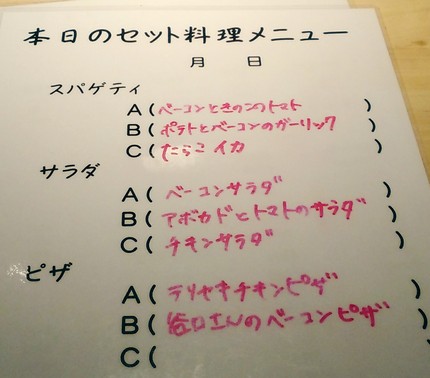 本日のセット料理メニュー
月 日
スパゲティ
A(ベーコンときのこのトマト)
B(ポテトとベーコンのガーリック)
C(たらこイカ)
サラダ
A(ベーコンサラダ)
B(アボカドとトマトのサラダ)
C(チキンサラダ)
ピザ
A(テリヤキチキンピザ)
B(谷口さんのベーコンピザ)
C(